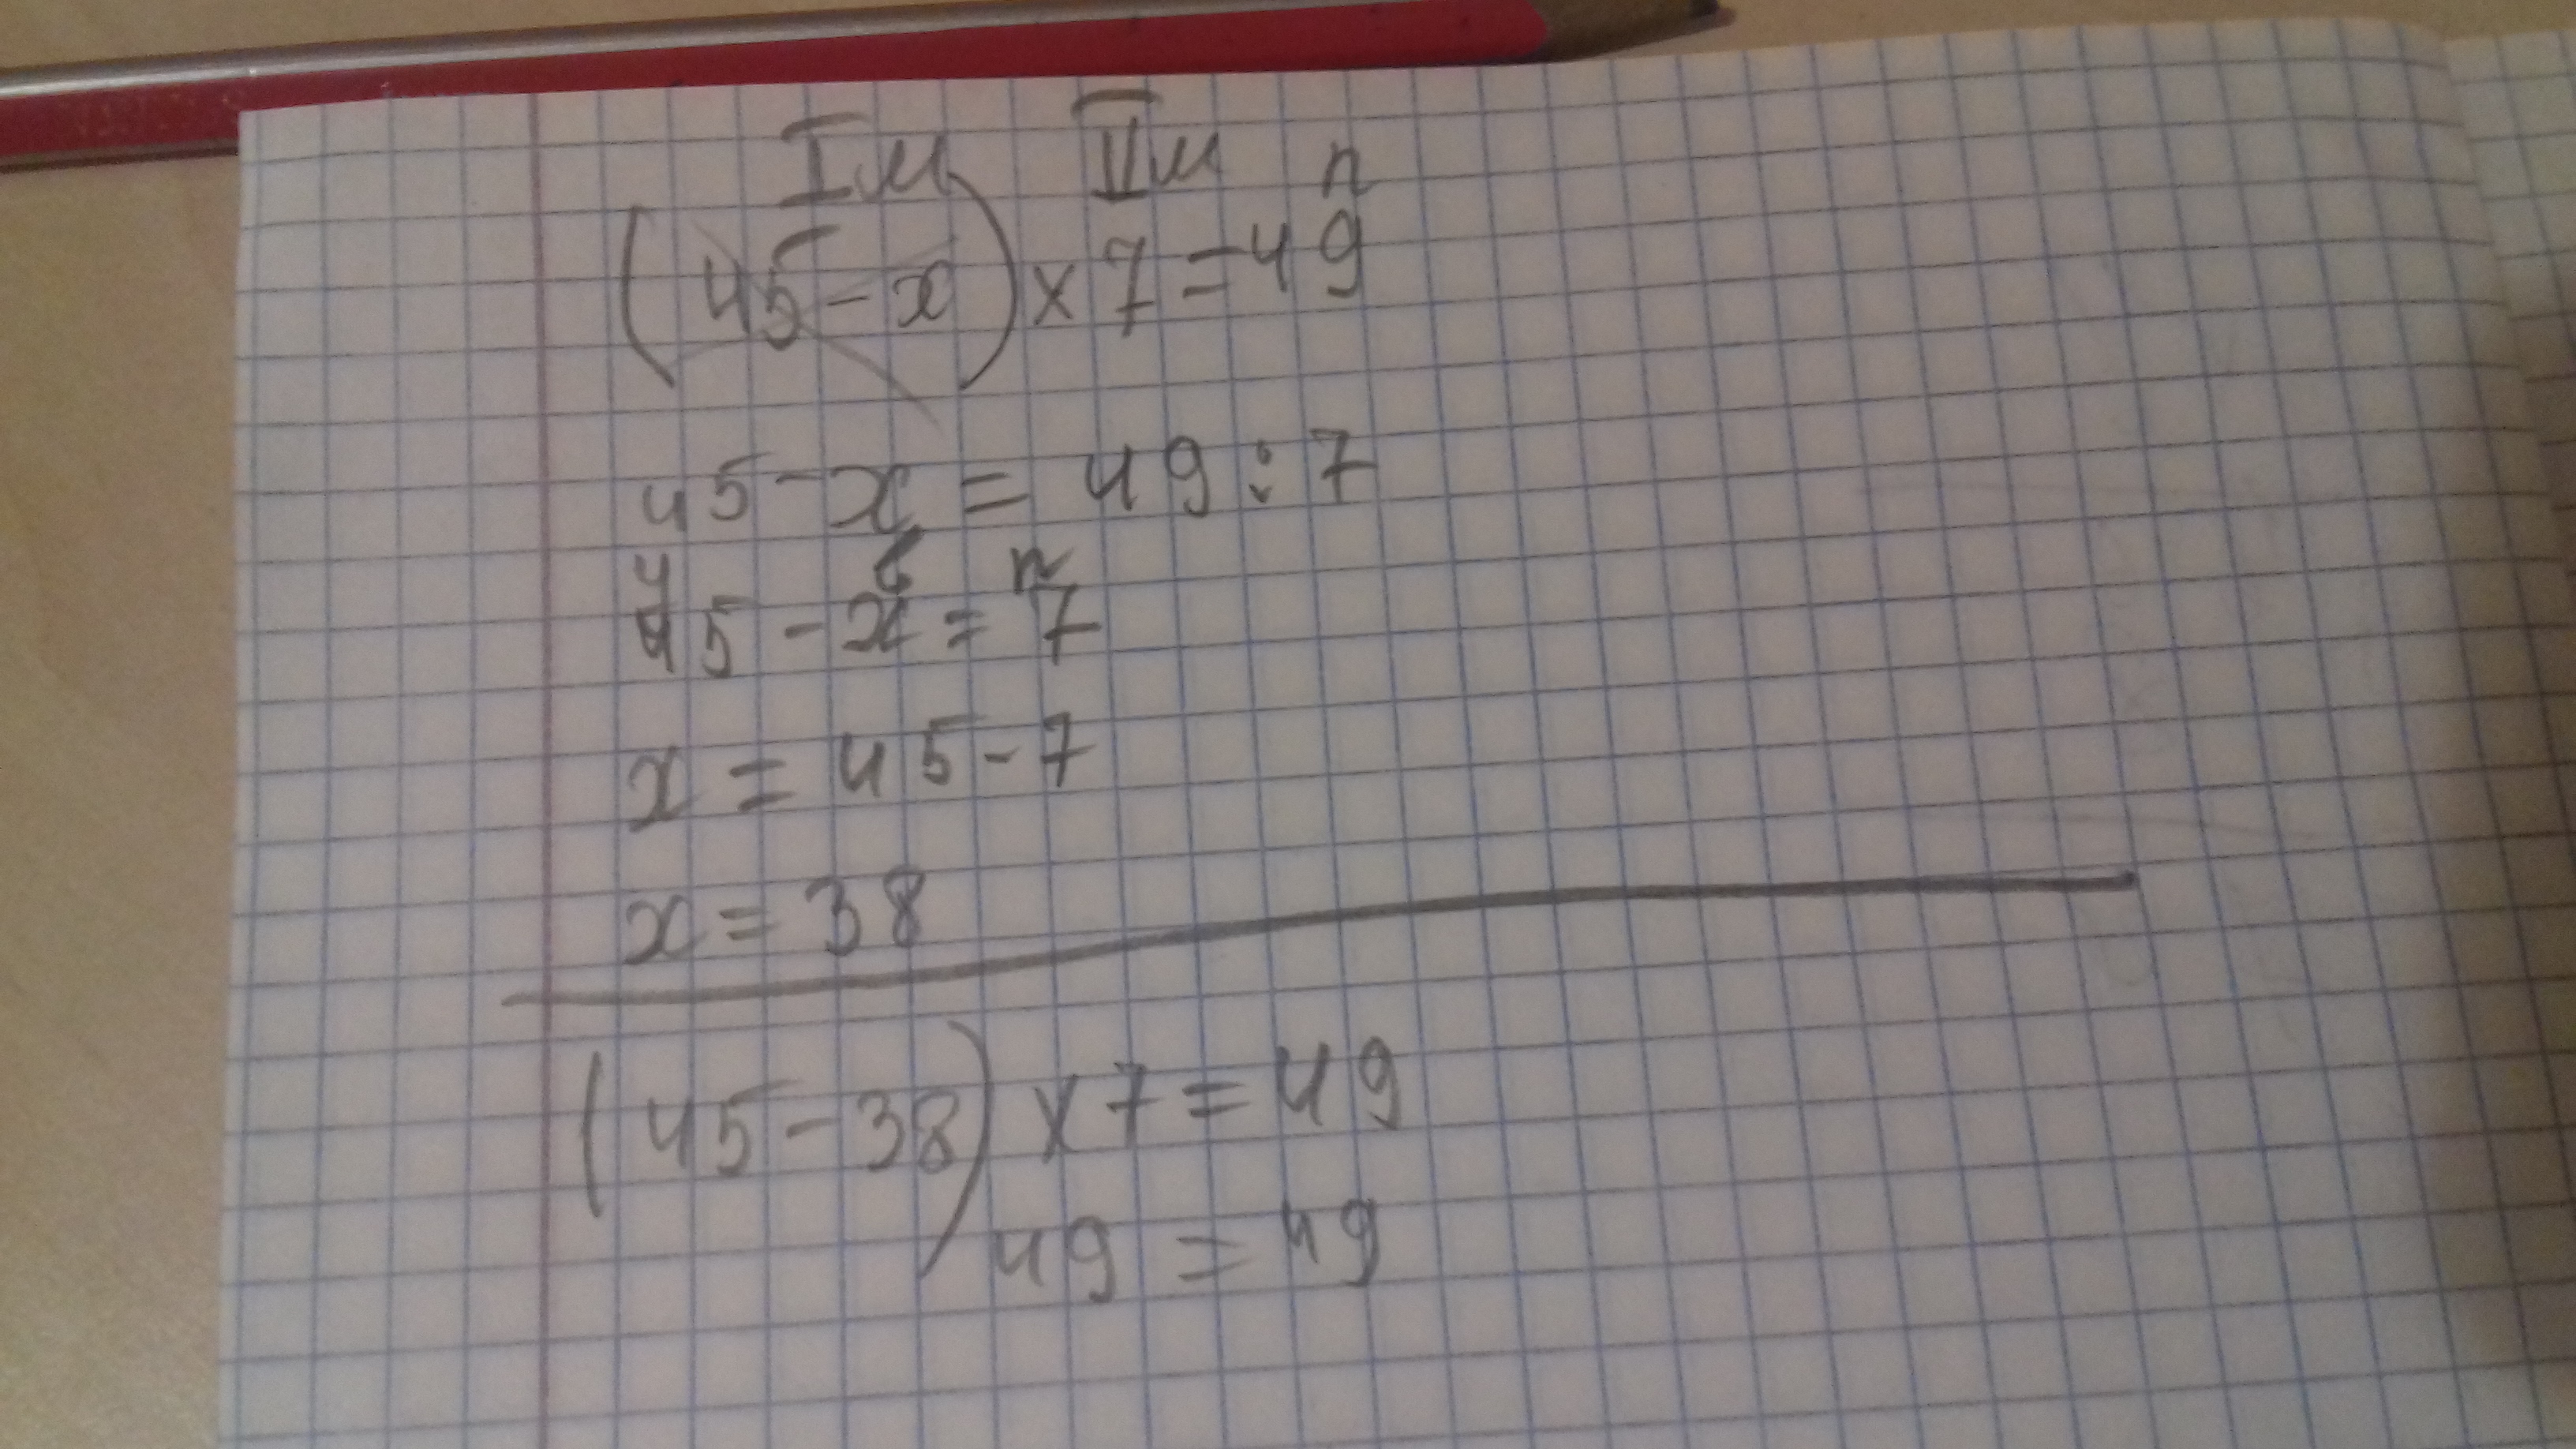 Iм IIм п
(45-x)x7=49
45-x=49:7
у в п
45-x=7
x=45-7
x=38
(45-38)x7=49
49=49